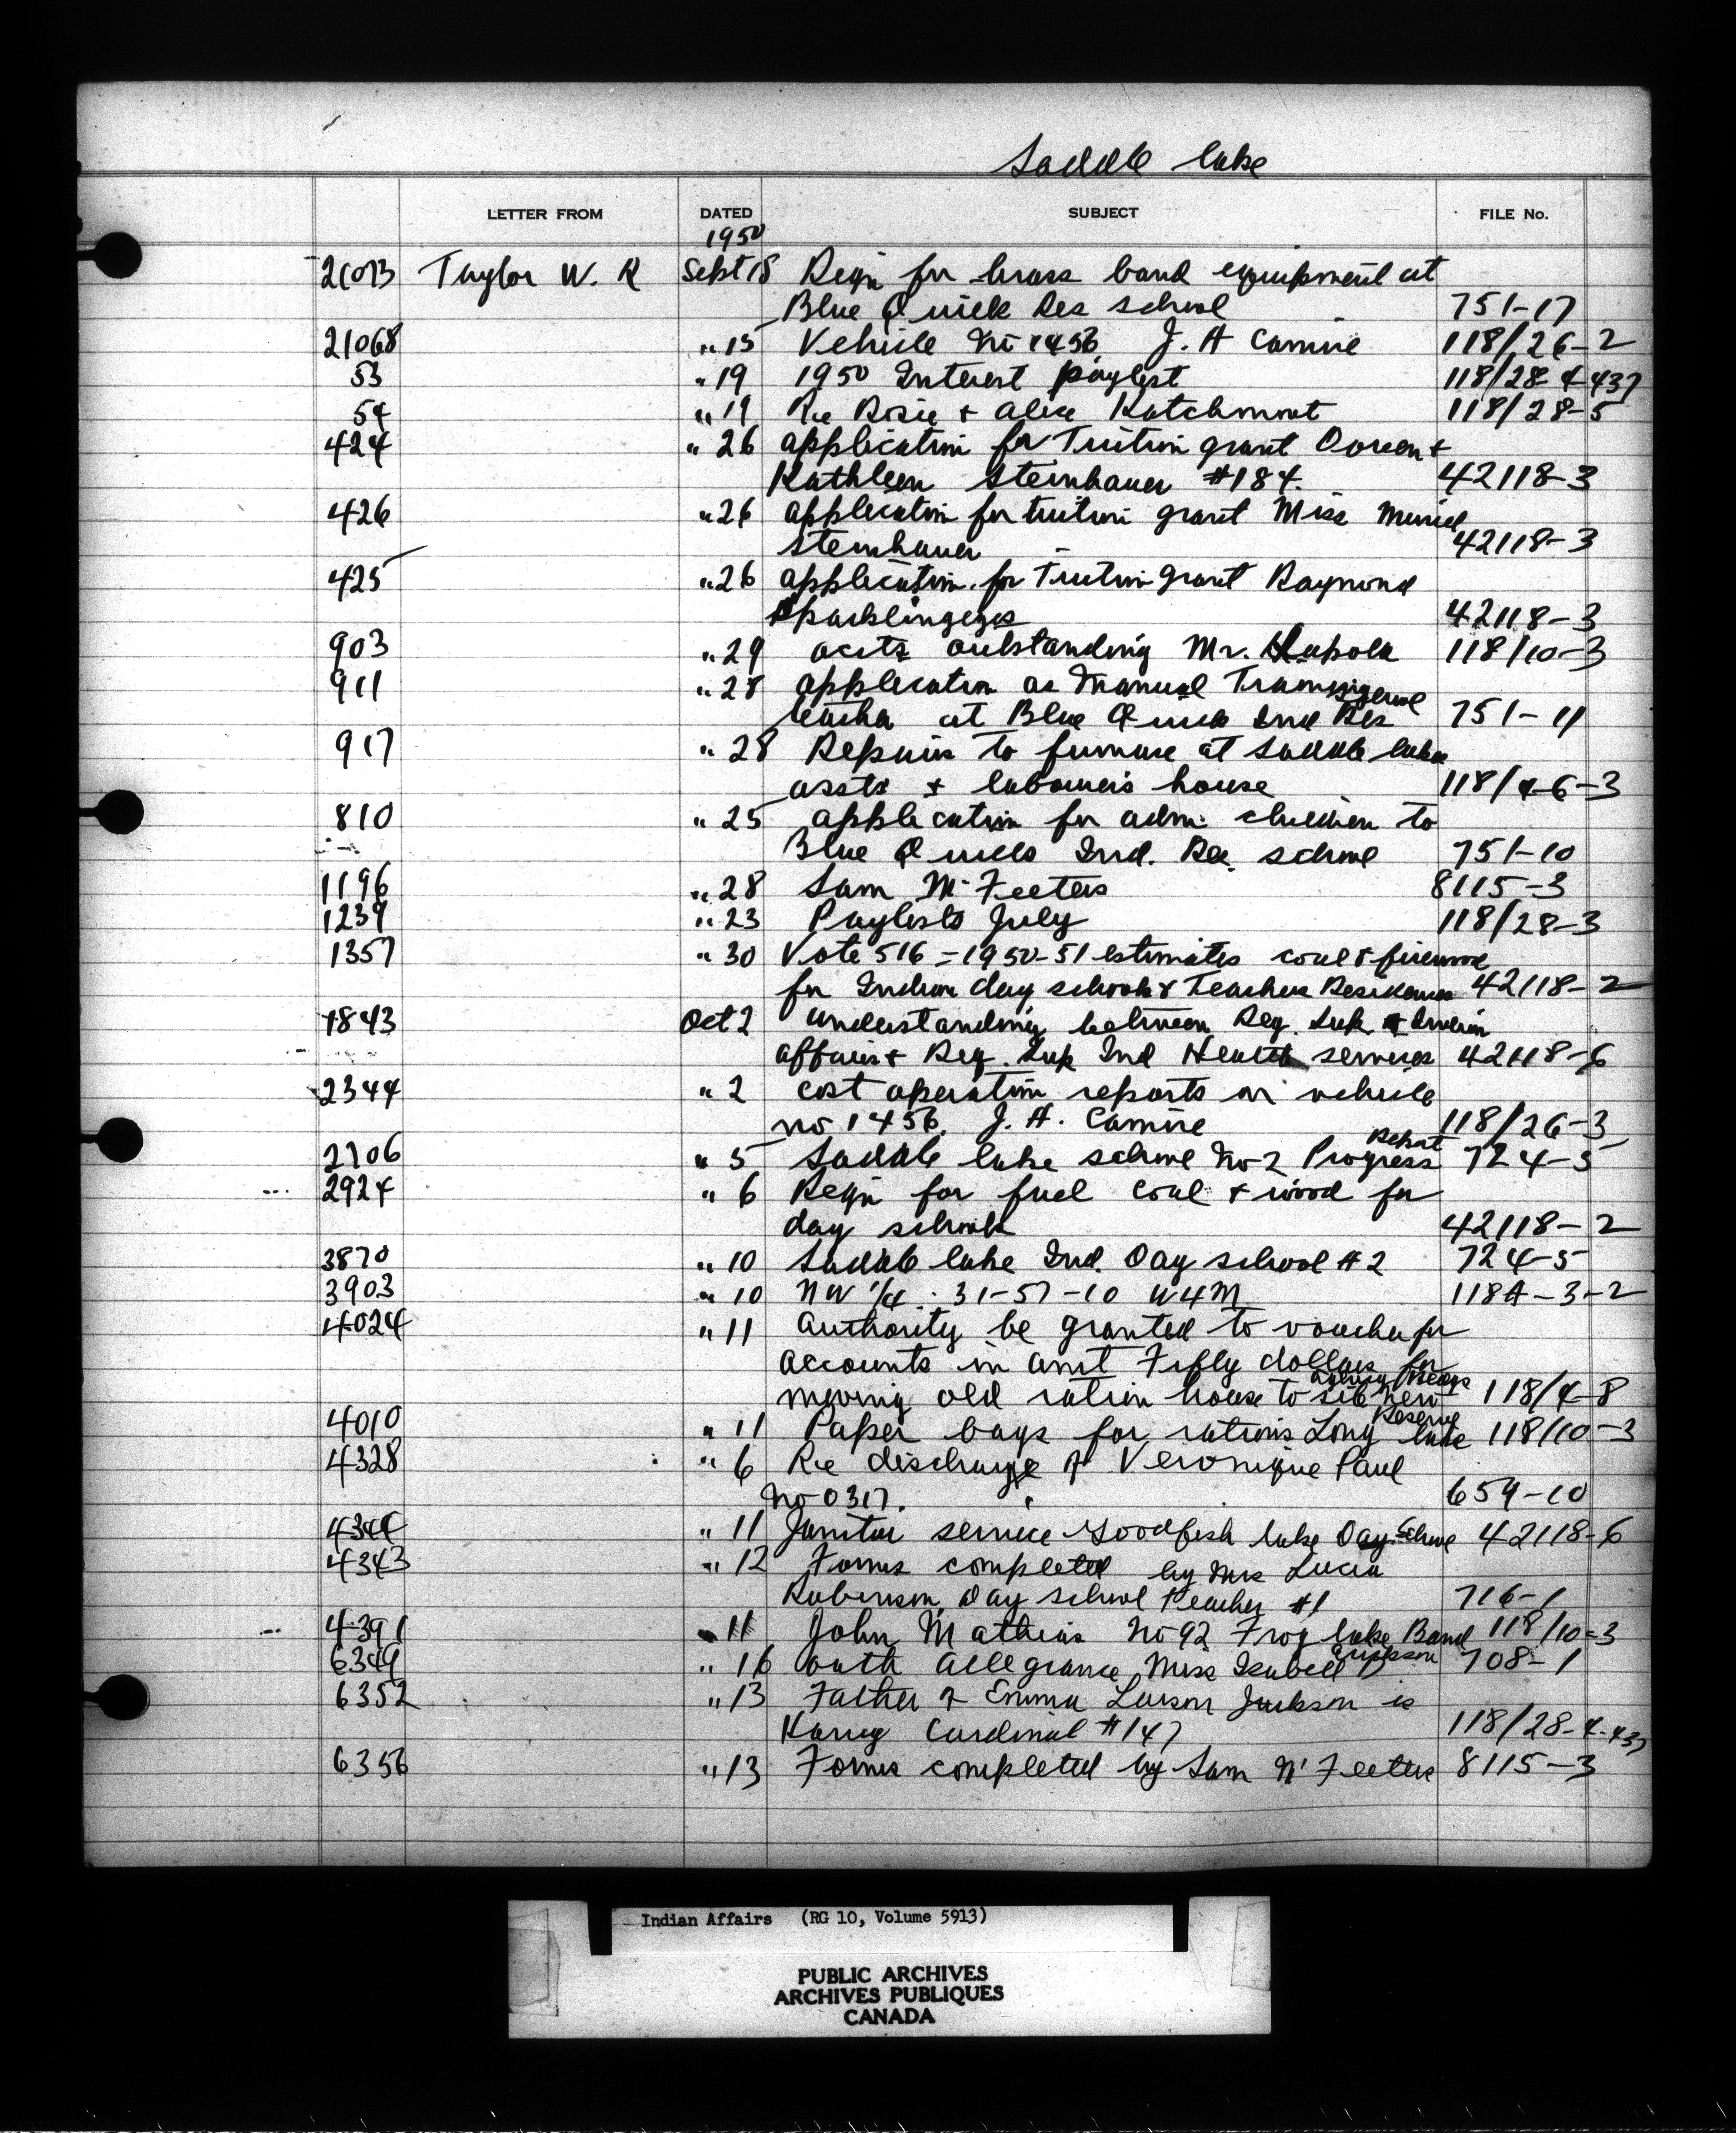 Saddle Lake
LETTER FROM DATED SUBJECT FILE No.
1950
21073 Taylor W. R Sept 18 Reqn for brass band equipment at
Blue Quills Res school 751-17
21068 " 15 Vehicle No 1456 J. A Camire 118/26-2
53 " 19 1950 Interest paylist 118/28-4-437
54 " 19 Re Rosie + Alice 118/28-5
424 " 26 application for Tuition grant Doreen +
Kathleen Steinhauer #184. 42118-3
426 " 26 application for tuition grant Miss Muriel
Steinhauer 42118-3
425 " 26 application for Tuition grant Raymond
Sparklingeyes 42118-3
903 " 29 accts outstanding Mr. 118/10-3
911 " 28 application as Manual Training
teacher at Blue Quills Ind Res school 751-11
917 " 28 Repairs to furnace at Saddle Lake
assts + labourers house 118/4-6-3
810 " 25 application for adm. children to
Blue Quills Ind. Res. school 751-10
1196 " 28 Sam McFeeters 8115-3
1239 " 23 Paylists July 118/28-3
1357 " 30 Vote 516 - 1950-51 estimates coal & firewood
for Indian day schools & Teachers Residences 42118-2
1843 Oct 2 understanding between Reg. Sup. Indian
affairs + Reg. Sup Ind Health services 42118-6
2344 " 2 cost operation reports on vehicle
no 1456. J. A. Camire 118/26-3
2706 " 5 Saddle Lake school No 2 Progress Report 724-5
2924 " 6 Reqn for fuel coal + wood for
day schools 42118-2
3870 " 10 Saddle Lake Ind. Day school #2 724-5
3903 " 10 NW 1/4 . 31-57-10 W4M 118A-3-2
4024 " 11 Authority be granted to voucher for
accounts in amt Fifty dollars for
moving old ration house to site new agency 118/4-8
4010 " 11 Paper bags for rations Long Lake Reserve 118/10-3
4328 " 6 Re discharge of Veronique Paul
No 0317. 659-10
4344 " 11 Janitor service Goodfish Lake Day School 42118-6
4343 " 12 Forms completed by Mrs Lucia
Robinson, Day school teacher #1 716-1
4391 " 11 John Mathias No 92 Frog Lake Band 118/10-3
6349 " 16 Oath Allegiance Miss Isabell Erickson 708-1
6352 " 13 Father of Emma Jackson is
Harry Cardinal #147 118/28-4-437
6356 " 13 Forms completed by Sam McFeeters 8115-3
Indian Affairs (RG 10, Volume 5913)
PUBLIC ARCHIVES
ARCHIVES PUBLIQUES
CANADA